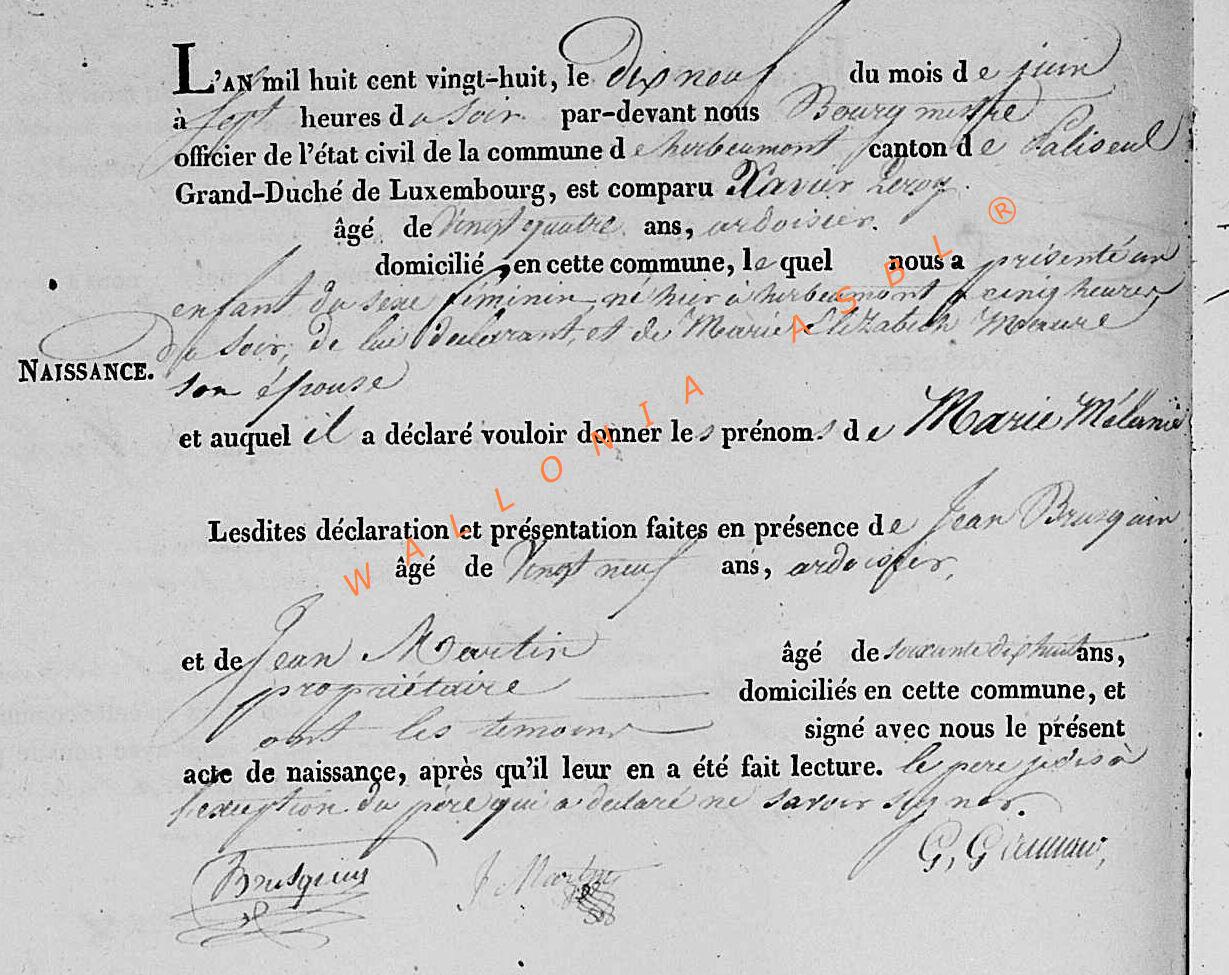 L'AN mil huit cent vingt-huit, le dix neuf du mois de juin
à sept heures du soir par-devant nous Bourgmestre
officier de l'état civil de la commune de herbeumont canton de Paliseul
Grand-Duché de Luxembourg, est comparu Xavier Leroy.
âgé de Vingt quatre ans, ardoisier.
domicilié, en cette commune, le quel nous a présenté un
enfant du sexe féminin né hier à herbeumont à cinq heures
du soir, de lui déclarant, et de Marie Elizabeth
NAISSANCE.
son épouse
et auquel il a déclaré vouloir donner les prénoms de Marie Mélanie
Lesdites déclaration et présentation faites en présence de Jean Brusquin
âgé de Vingt neuf ans, ardoisier,
et de Jean Martin âgé de soixante dix huit ans,
propriétaire domiciliés en cette commune, et
ont les temoins signé avec nous le présent
acte de naissance, après qu'il leur en a été fait lecture. le pere à
l'exeption du père qui a déclaré ne savoir signer.
Brusquin J Martin G,
WALLONIA ASBL ®